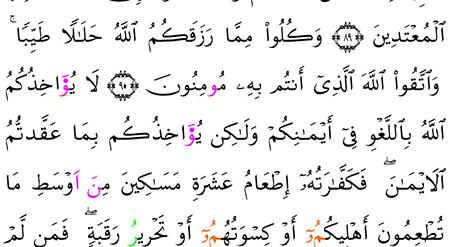 اَ۬لْمُعْتَدِينَ ۝٨٩ وَكُلُواْ مِمَّا رَزَقَكُمُ اُ۬للَّهُ حَلَٰلاٗ طَيِّباٗۖ
وَاتَّقُواْ اُ۬للَّهَ اَ۬لَّذِےٓ أَنتُم بِهِۦ مُومِنُونَ ۝٩٠ لَا يُوَ۬اخِذُكُمُ
اُ۬للَّهُ بِاللَّغْوِ فِےٓ أَيْمَٰنِكُمْ وَلَٰكِنْ يُّوَ۬اخِذُكُم بِمَا عَقَّدتُّمُ
اُ۬لَايْمَٰنَۖ فَكَفَّٰرَتُهُۥٓ إِطْعَامُ عَشَرَةِ مَسَٰكِينَ مِنَ اَوْسَطِ مَا
تُطْعِمُونَ أَهْلِيكُمُۥٓ أَوْ كِسْوَتُهُمُۥٓ أَوْ تَحْرِيرُ رَقَبَةٖۖ فَمَن لَّمْ